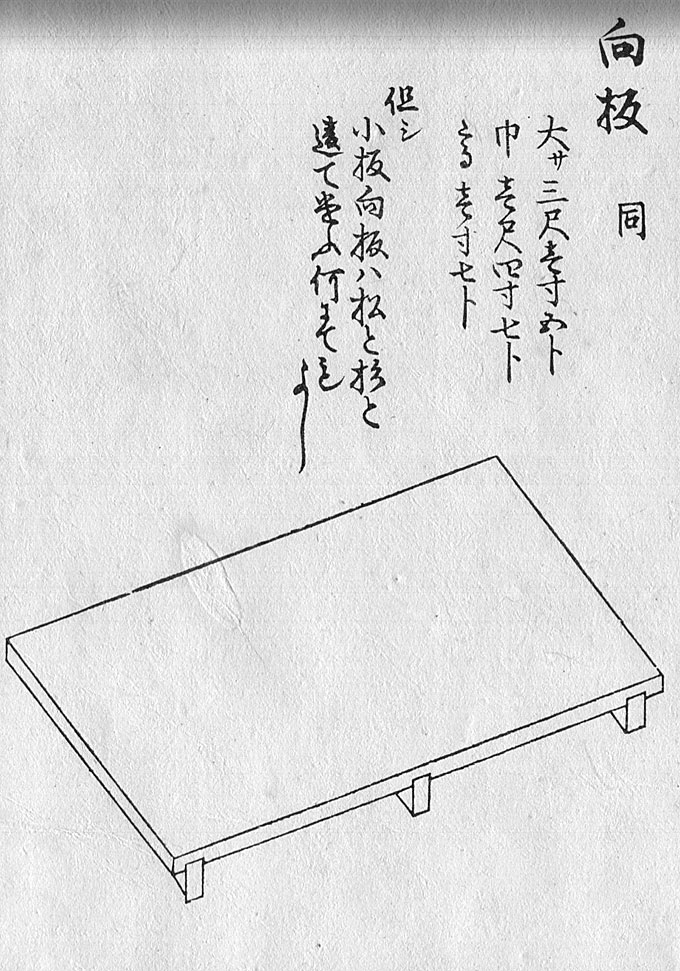 向板 同
大サ三尺壱寸五ト
巾 壱尺四寸七ト
壱寸七ト
但シ
小板向板ハ松と杉と
何にてもよし